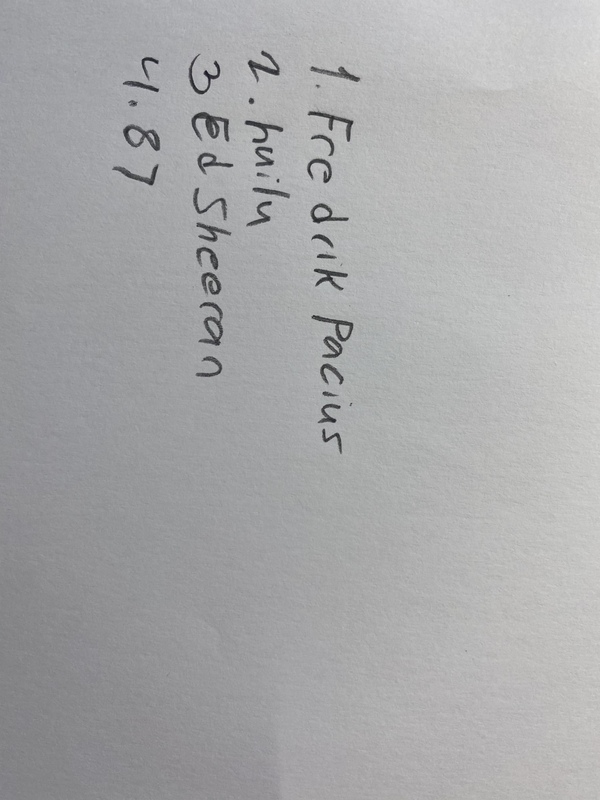 1. Fredrik Pacius
2. huilu
3 Ed Sheeran
4. 87